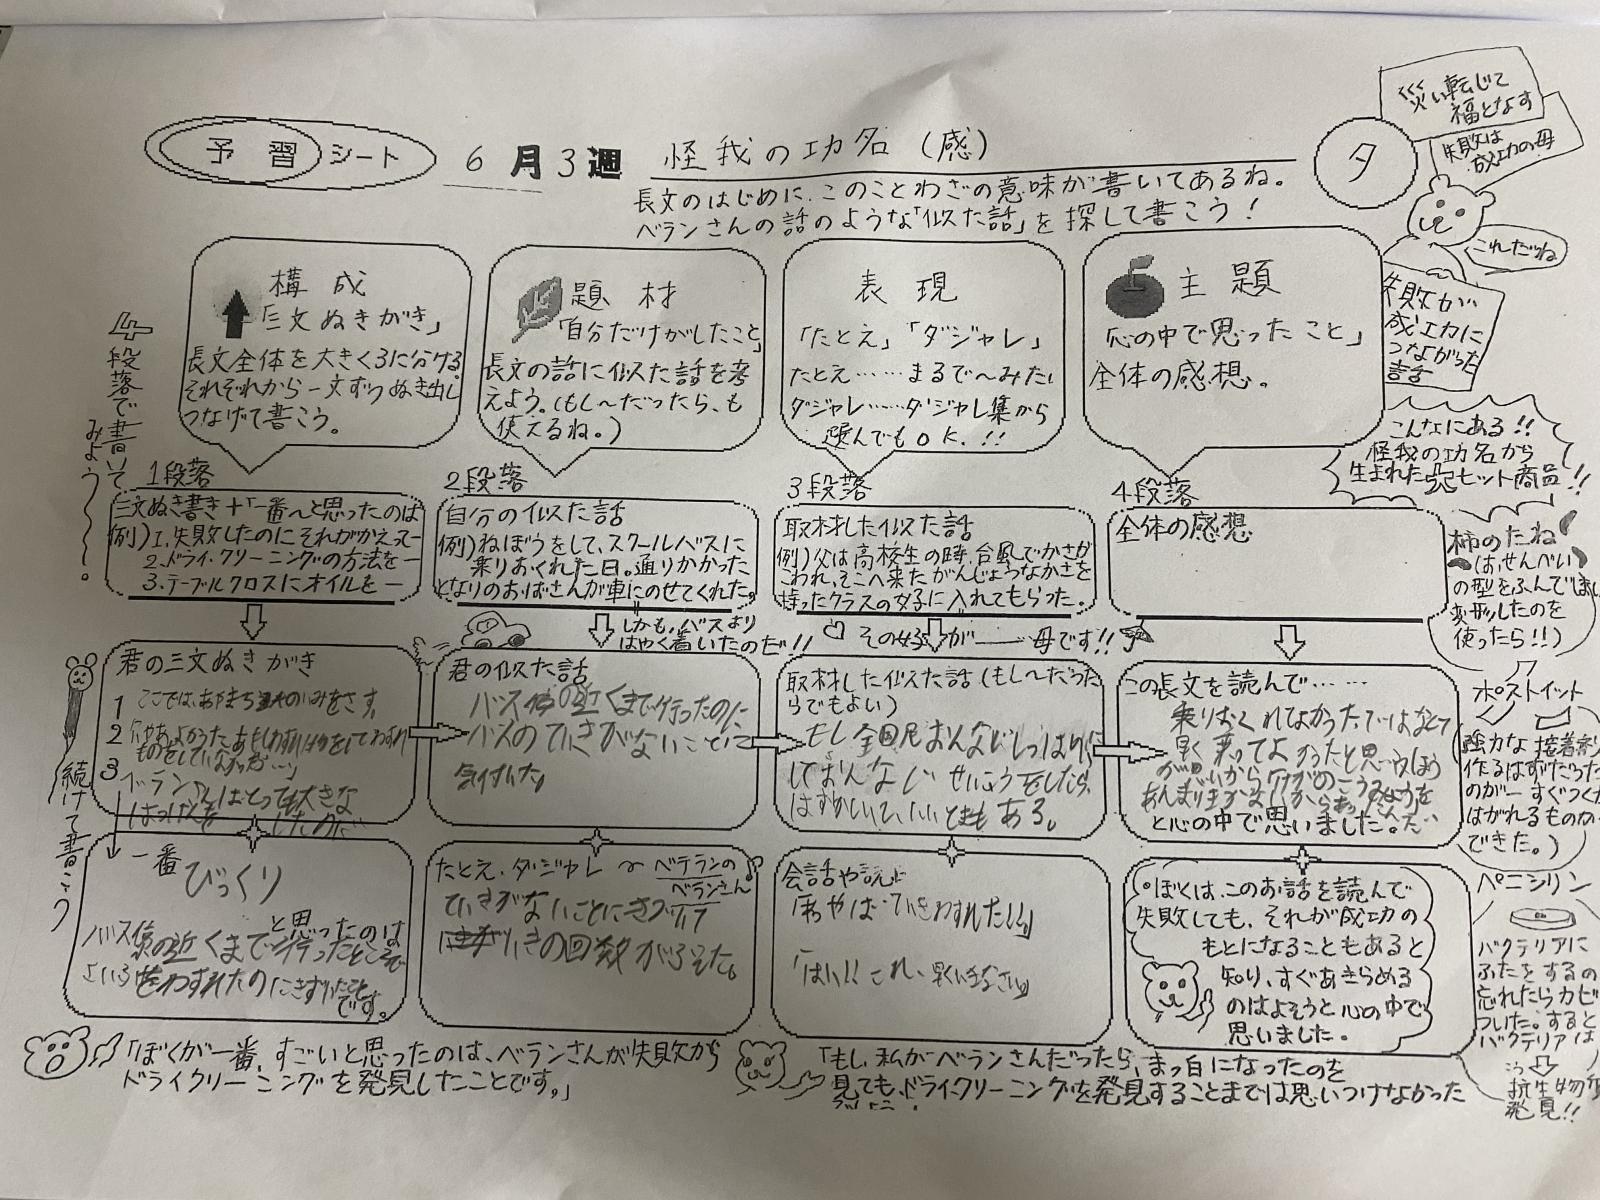 予習シート 6月3週 怪我の功名(感)
タ
長文のはじめに、このことわざの意味が書いてあるね。
ベランさんの話のような「似た話」を探して書こう!
災い転じて
福となす
失敗は
成功の母
これだね
失敗が
成功に
つながった
言舌
こんなにある!!
怪我の功名から
生まれた大ヒット商品!!
4段落で書いて
みよう〜〜〜。
構成
「三文ぬきがき」
長文全体を大きく3に分ける。
それぞれから一文ずつぬき出し
つなげて書こう。
題材
「自分だけがしたこと」
長文の話に似た話を考
えよう。(もし〜だったら、も
使えるね。)
表現
「たとえ」「ダジャレ」
たとえ……まるで〜みたい
ダジャレ……ダジャレ集から
選んでもOK.!!
主題
「心の中で思ったこと」
全体の感想。
1段落
三文ぬき書き+「一番〜と思ったのは
例)1.失敗したのにそれがかえって
2.ドライ・クリーニングの方法を—
3.テーブルクロスにオイルを—
2段落
自分の似た話
例)ねぼうをして、スクールバスに
乗りおくれた日。通りかかった
となりのおばさんが車にのせてくれた。
しかも、バスより
はやく着いたのだ!!
3段落
取材した似た話
例)父は高校生の時、台風でかさが
こわれ、そこへ来たがんじょうなかさを
持ったクラスの女子に入れてもらった。
その女子が——母です!!
4段落
全体の感想
柿のたね
(はせんべい
の型をふんで
変形したのを
使ったら!!)
続けて書こう
君の三文ぬきがき
1 ここでは、あやまち のいみをさす。
2
ものをしていなかった…」
3 ベランさんはとっても大きな
はっけんを したのだ
君の似た話
バス停の近くまで行ったのに
バスのていきがないことに
気付いた
取材した似た話(もし〜だった
らでもよい)
もし全国民おんなじしっぱい
しておんなじせいこうをしたら、
はずかしいで、いいときもある。
この長文を読んで……
乗りおくれなかったではなくて
早く乗ってよかったと思うほう
と心の中で思いました。
ポストイット
強力な接着剤
作るはずだった
のが—すぐつくが
はがれるものが
できた。)
一番
びっくり
と思ったのは
バス停の近くまで行ったところで
わすれたのにきずいたこと
です。
たとえ、ダジャレ〜ベテランの
ベランさん
ていきがないことにきづいて
ていきの回数がふえた。
会話や説
「あやば、ていきわすれた!!」
「はい!!これ、早くいきなさい」
。ぼくは、このお話を読んで
失敗しても、それが成功の
もとになることもあると
知り、すぐあきらめる
のはよそうと心の中で
思いました。
ペニシリン
バクテリアに
ふたをするの
忘れたらカビ
ついた。すると
バクテリアは
抗生物質
発見!!
「ぼくが一番、すごいと思ったのは、ベランさんが失敗から
ドライクリーニングを発見したことです。」
「もし、私がベランさんだったら、まっ白になったのを
見ても、ドライクリーニングを発見することまでは思いつけなかった